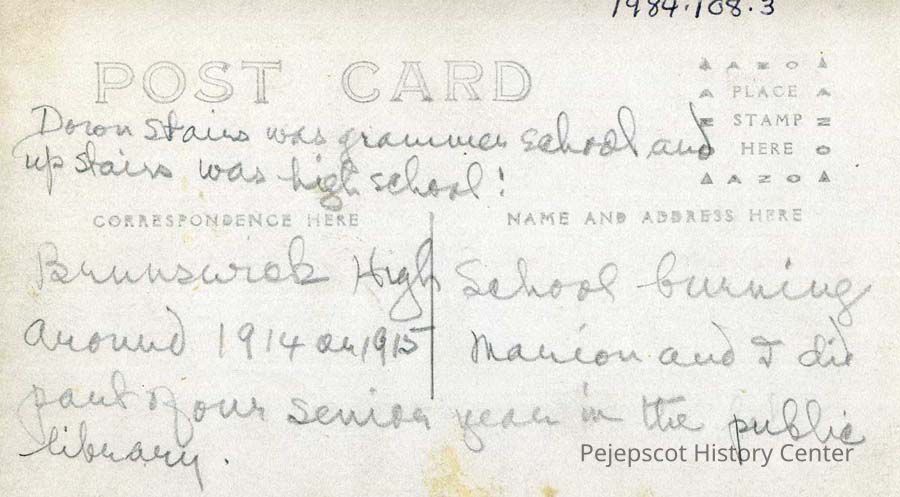 1984.108.3
POST CARD
AZO
PLACE
STAMP
HERE
AZO
Down stairs was grammer school and
up stairs was high school!
CORRESPONDENCE HERE
NAME AND ADDRESS HERE
Brunswick High School burning
around 1914 or 1915 Marion and I did
part of our senior year in the public
library.
Pejepscot History Center